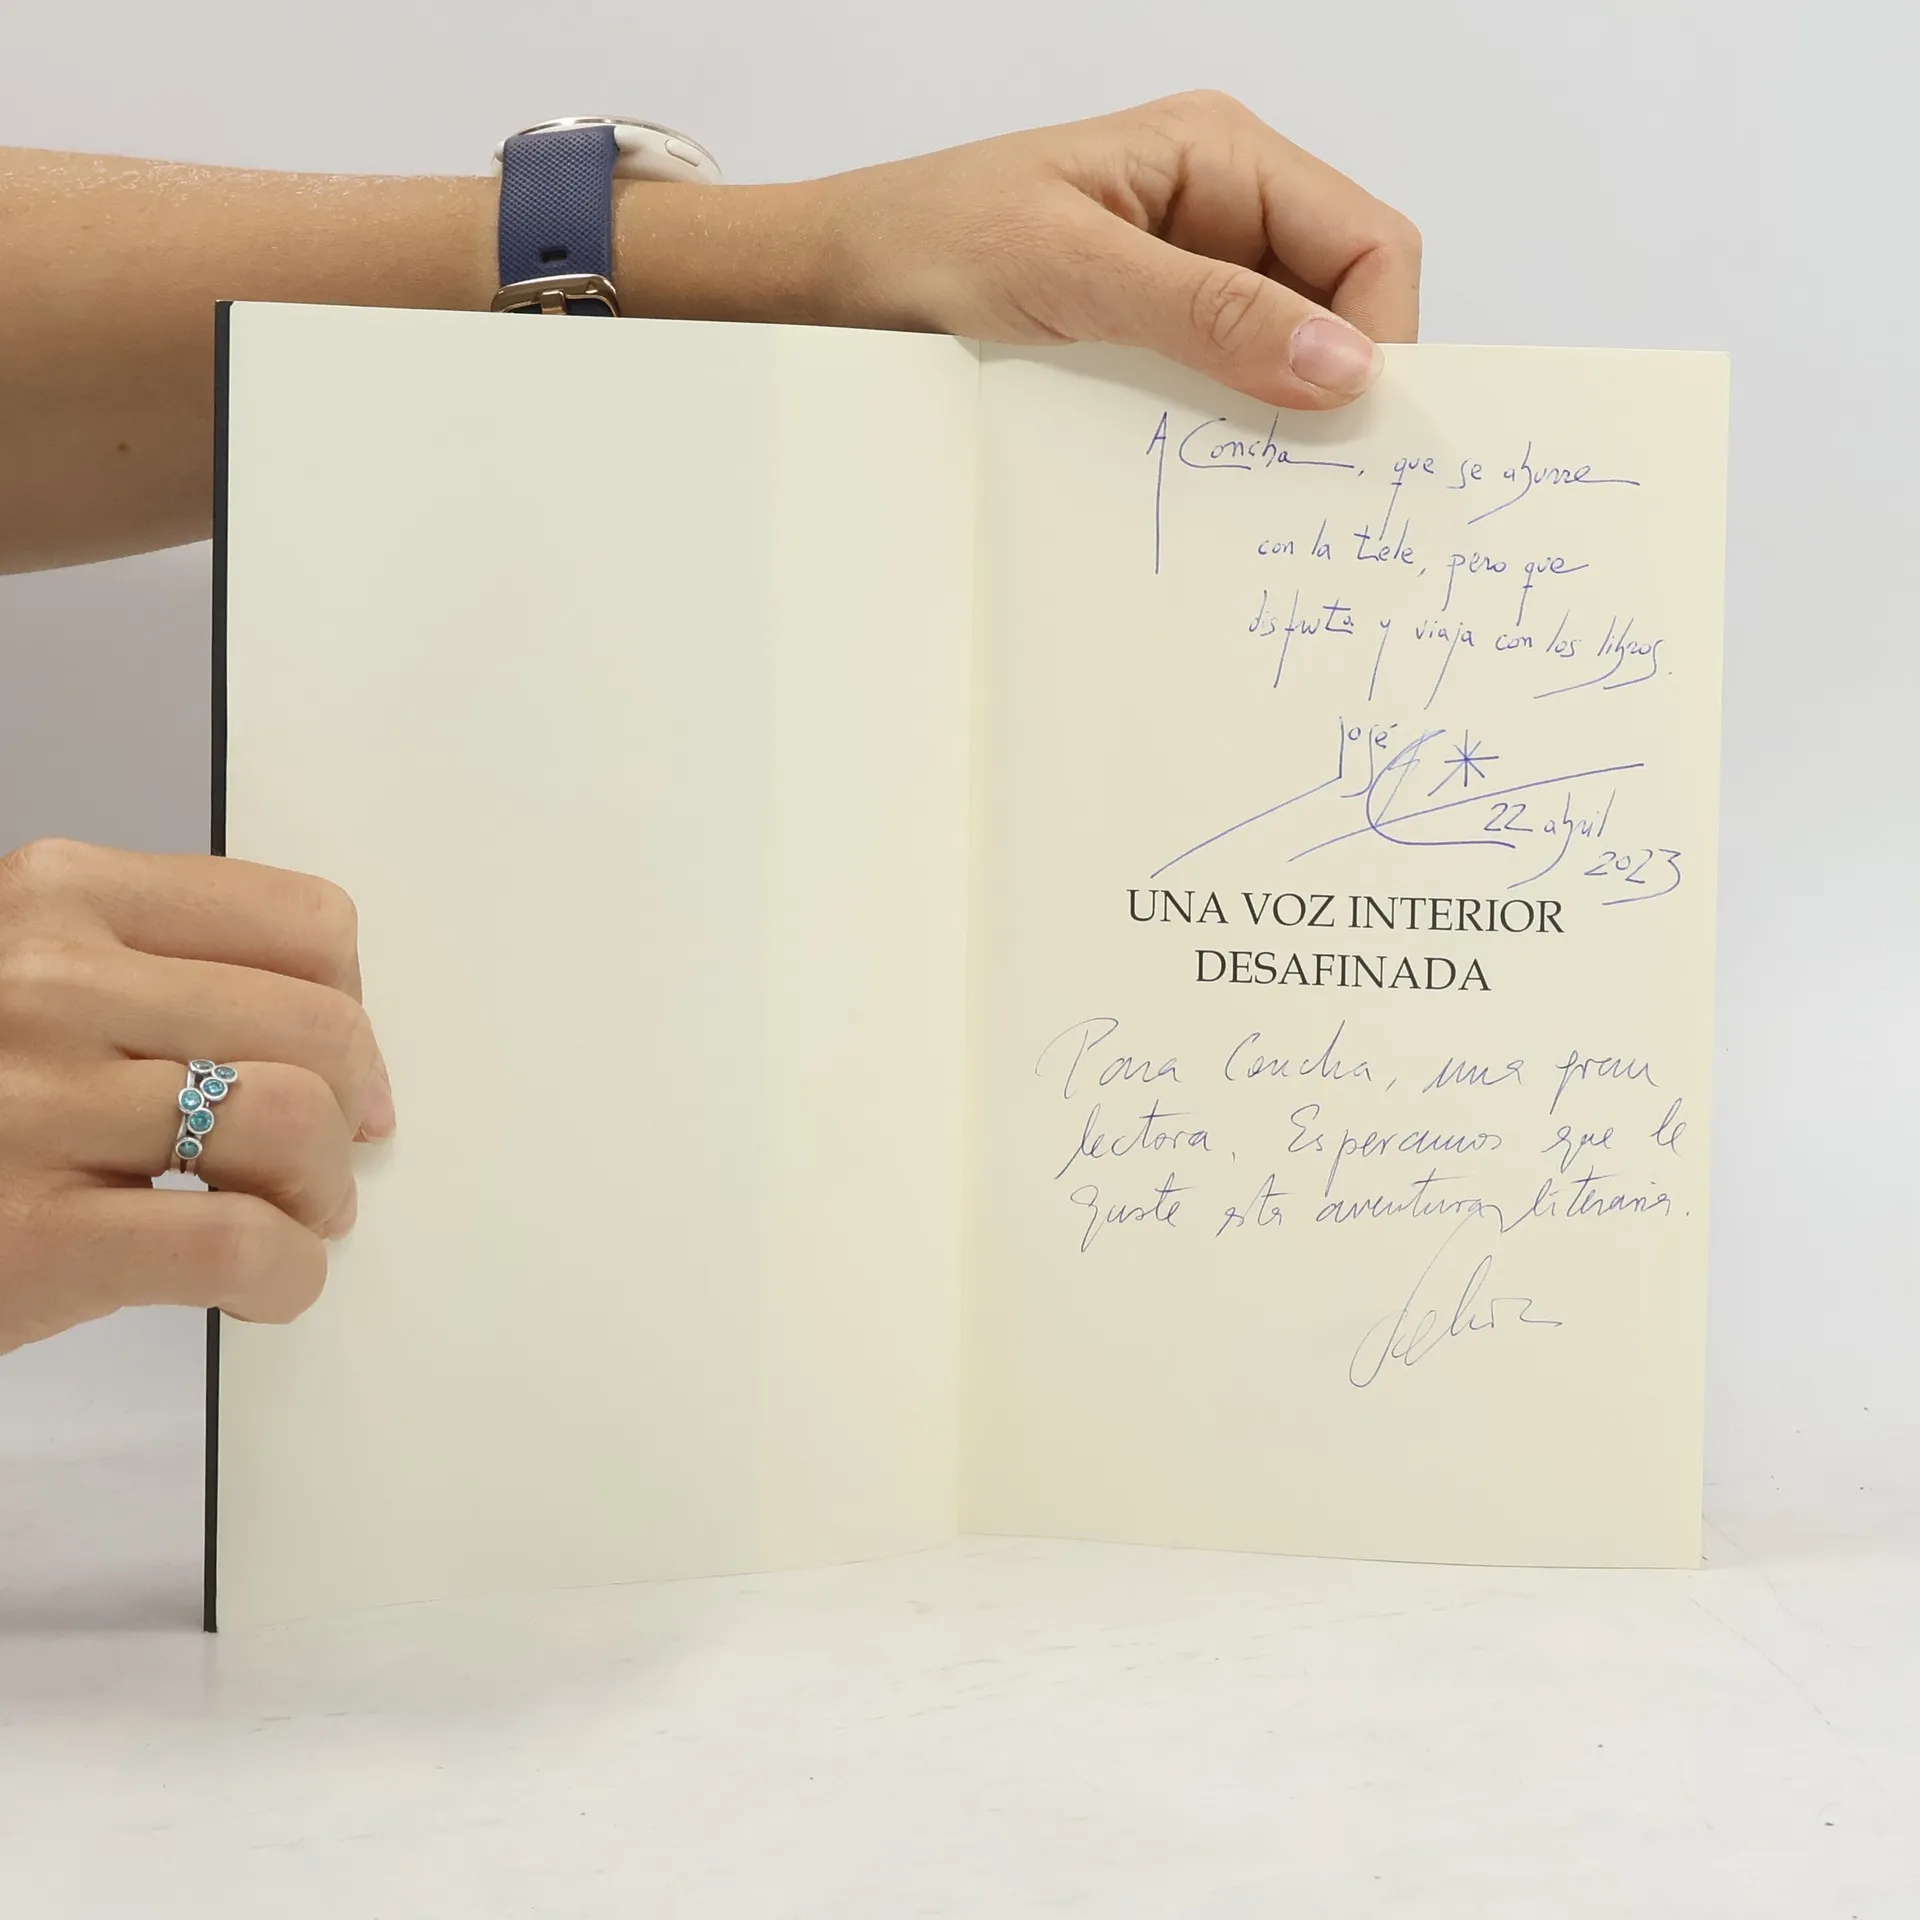 A Concha, que se aburre
con la tele, pero que
disfruta y viaja con los libros.
José
22 abril
2023
UNA VOZ INTERIOR
DESAFINADA
Para Concha, una gran
lectora. Esperamos que le
guste esta aventura literaria.